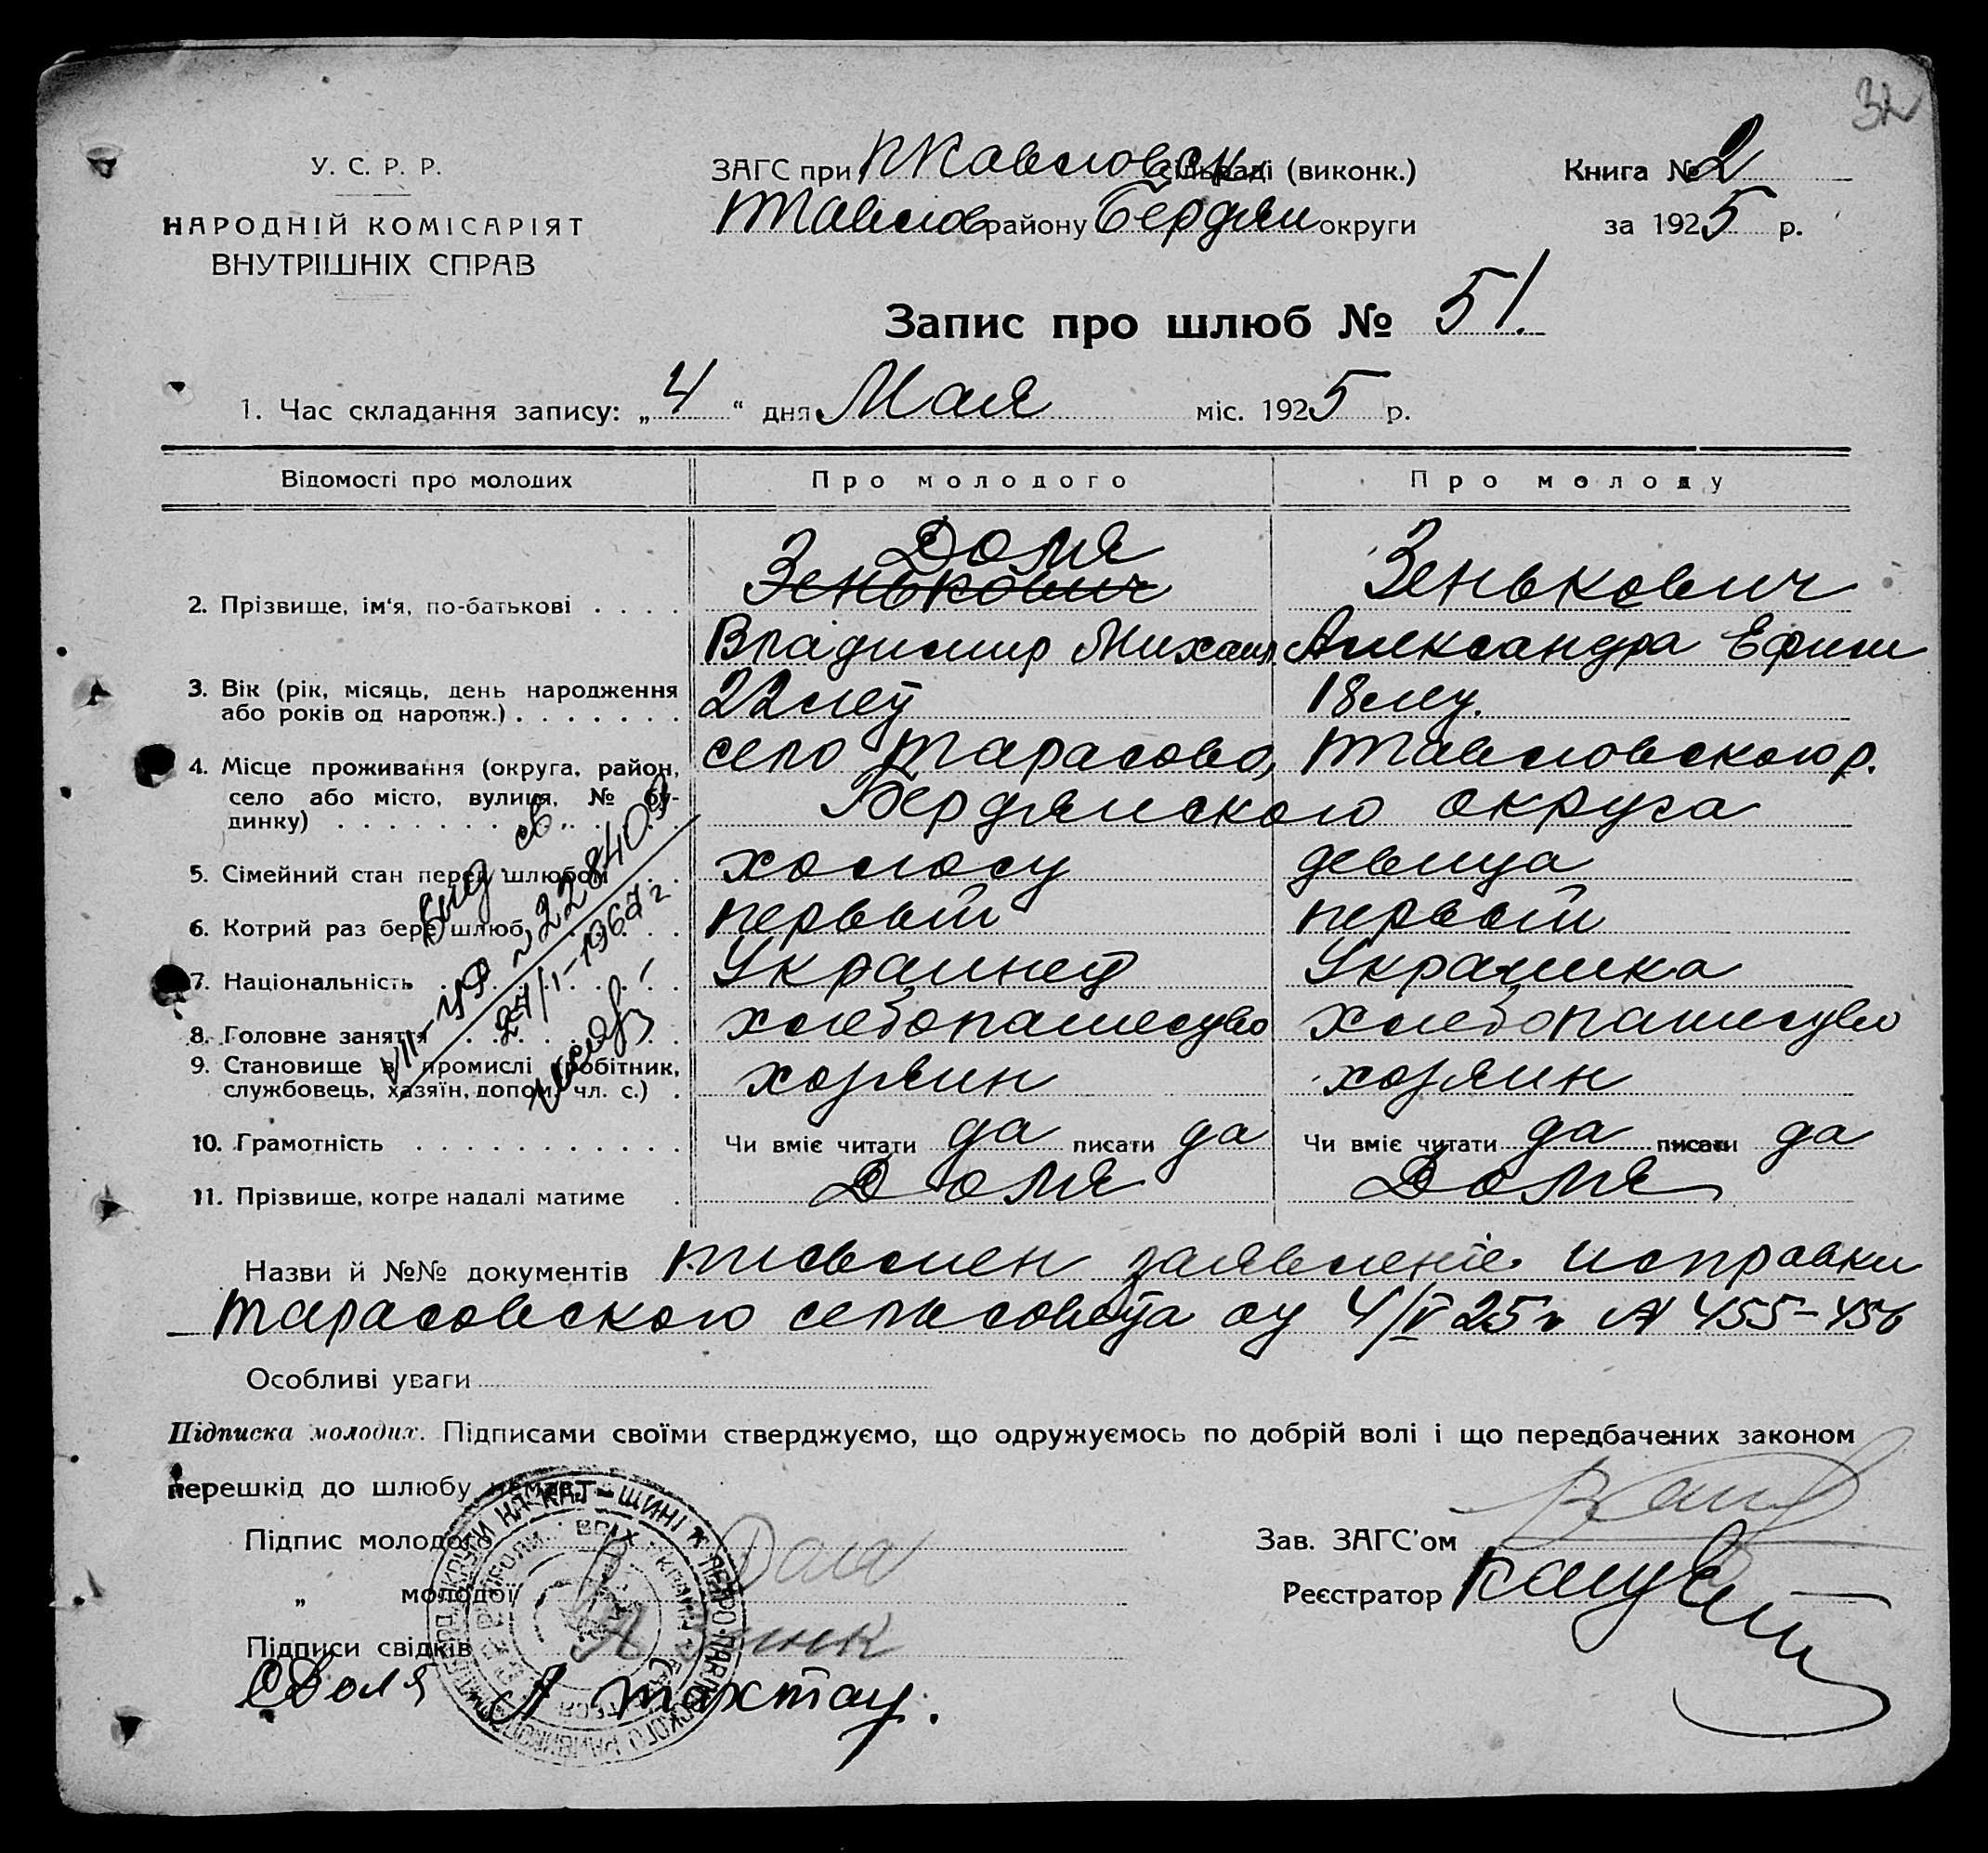 32
У. С. Р. Р.
НАРОДНІЙ КОМІСАРІЯТ
ВНУТРІШНІХ СПРАВ
ЗАГС при сільраді (виконк.)
району Бердян округи
Книга № 2
за 1925 р.
Запис про шлюб № 51.
1. Час складання запису: „4“ дня Мая міс. 1925 р.
Відомості про молодих
Про молодого
Про молоду
2. Прізвище, ім'я, по-батькові . . . .
Доля
Зенькович
Владимир Михаил
Зенькович
Александра Ефим
3. Вік (рік, місяць, день народження
або років од народж.) . . . . . . .
22 лет
18 лет.
4. Місце проживання (округа, район,
село або місто, вулиця, № бу-
динку) . . . . . . . . . . . .
село Тарасово, Павловского р.
Бердянского округа
5. Сімейний стан перед шлюбом . .
холост
девица
6. Котрий раз бере шлюб . . . . .
первый
первый
7. Національність . . . . . . . .
Украинец
Украинка
8. Головне заняття . . . . . . . .
хлебопашество
хлебопашество
9. Становище в промислі (робітник,
службовець, хазяїн, допом. чл. с.) .
хозяин
хозяин
10. Грамотність . . . . . . . . . . .
Чи вміє читати да писати да
Чи вміє читати да писати да
11. Прізвище, котре надалі матиме .
Доля
Доля
Выд св.
VII-ЦФ № 228409
24/I-1967 г
Назви й №№ документів письмен заявление и справки
Тарасовского сельсовета от 4/V 25 г № 455-456
Особливі уваги
Підписка молодих. Підписами своїми стверджуємо, що одружуємось по добрій волі і що передбачених законом
перешкід до шлюбу немає.
Підпис молодого
„ молодої
Підписи свідків
СДоля
Зав. ЗАГС'ом
Реєстратор